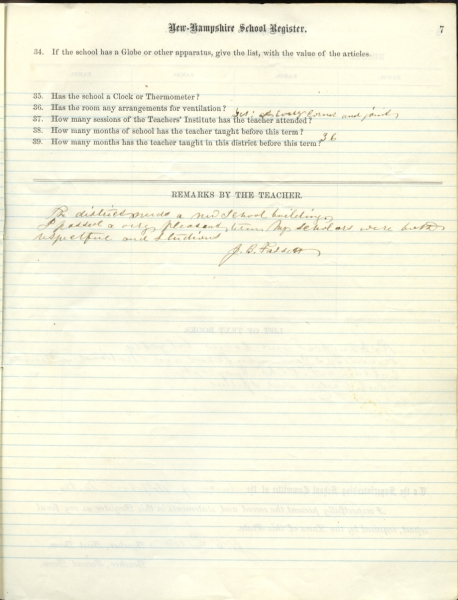 New-Hampshire School Register.
7
34. If the school has a Globe or other apparatus, give the list, with the value of the articles.
35. Has the school a Clock or Thermometer?
36. Has the room any arrangements for ventilation? Yes; at every corner and joint
37. How many sessions of the Teachers' Institute has the teacher attended?
38. How many months of school has the teacher taught before this term? 36
39. How many months has the teacher taught in this district before this term?
REMARKS BY THE TEACHER.
The district needs a new school building
I passed a very pleasant term My scholars were both
respectful and studious